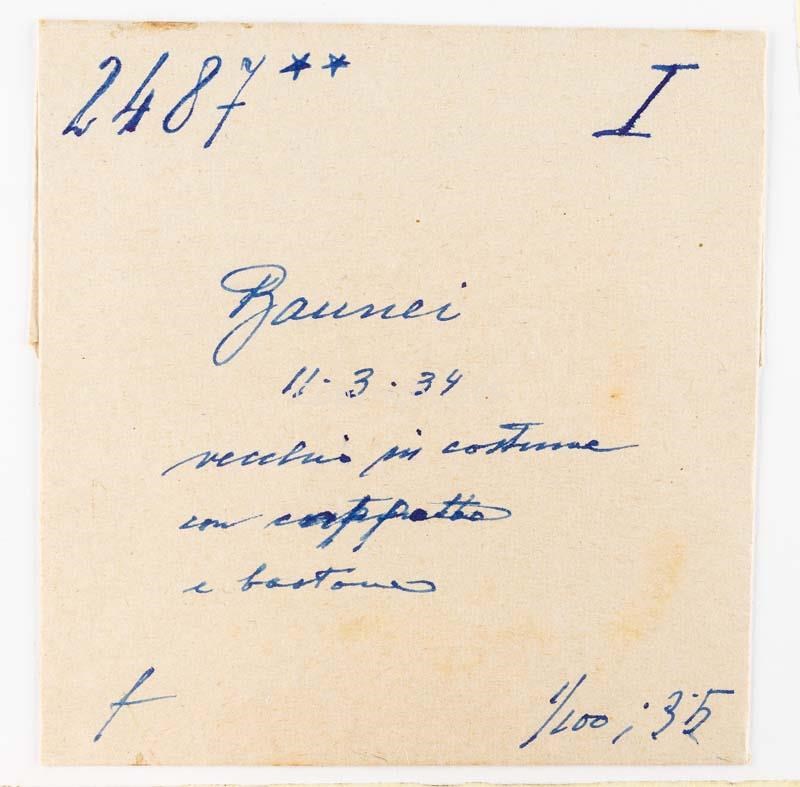 2487** I
Baunei
11·3·34
vecchio in costume
con cappotto
e bastone
f 1/100 ; 3'5